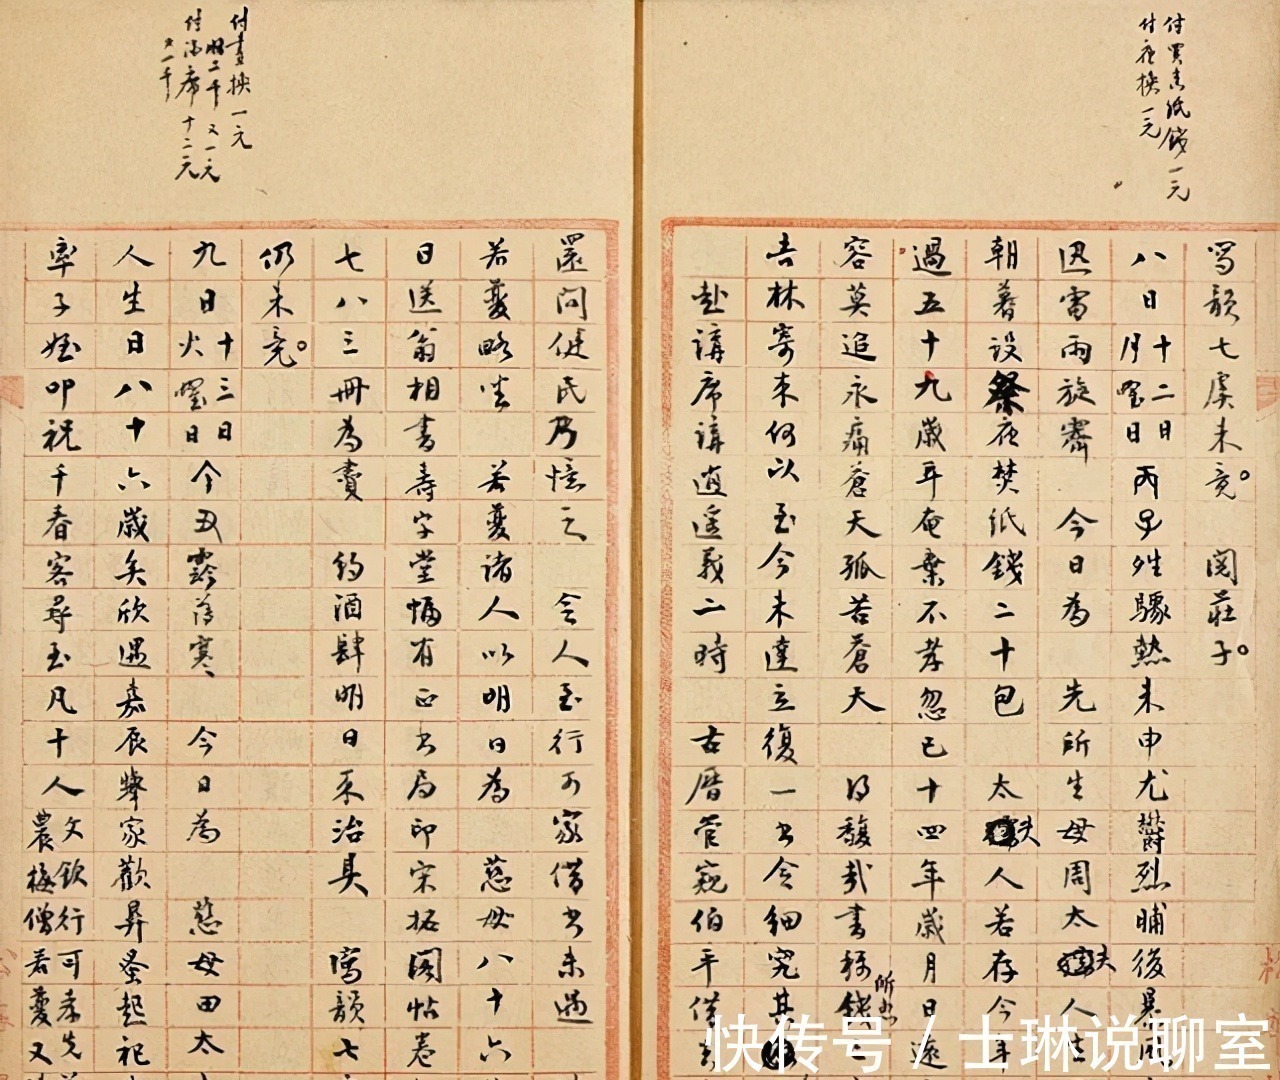 付買書紙錢一元
付夜換一元
寫韻七虞未竟。　閱莊子。
八日十二日月曜日丙子姓驟熱未申尤鬱烈晡後暴風
因雷雨旋霽　今日為　先所生母周太夫人生
朝暮設祭夜焚紙錢二十包　太夫人若存今年
過五十九歲耳奄棄不孝忽已十四年歲月日遠
容莫追永痛蒼天孤苦蒼天　得馥哉書稱所匯錢
吉林寄來何以至今未達立復一書令細究其
赴講席講逍遙義二時　古曆管窺伯平借
付書換一元
加二千又一元
付酒席十二元
又一千
還問健民乃憶之　令人至行可家借書未遇
若蘷略坐　若蘷諸人以明日為　慈母八十六
日送翁相書壽字堂幅有正書局印宋拓閣帖卷
七八三冊為賮　約酒肆明日來治具　寫韻七
仍未竟。
九日十三日火曜日今丑霽薄寒　今日為　慈母田太
人生日八十六歲矣欣遇嘉辰舉家歡昇蚤起祀
率子姪叩祝千春客尋玉凡十人文欽行可孝先農梅僧若蘷又
快传号 / 士琳说聊室